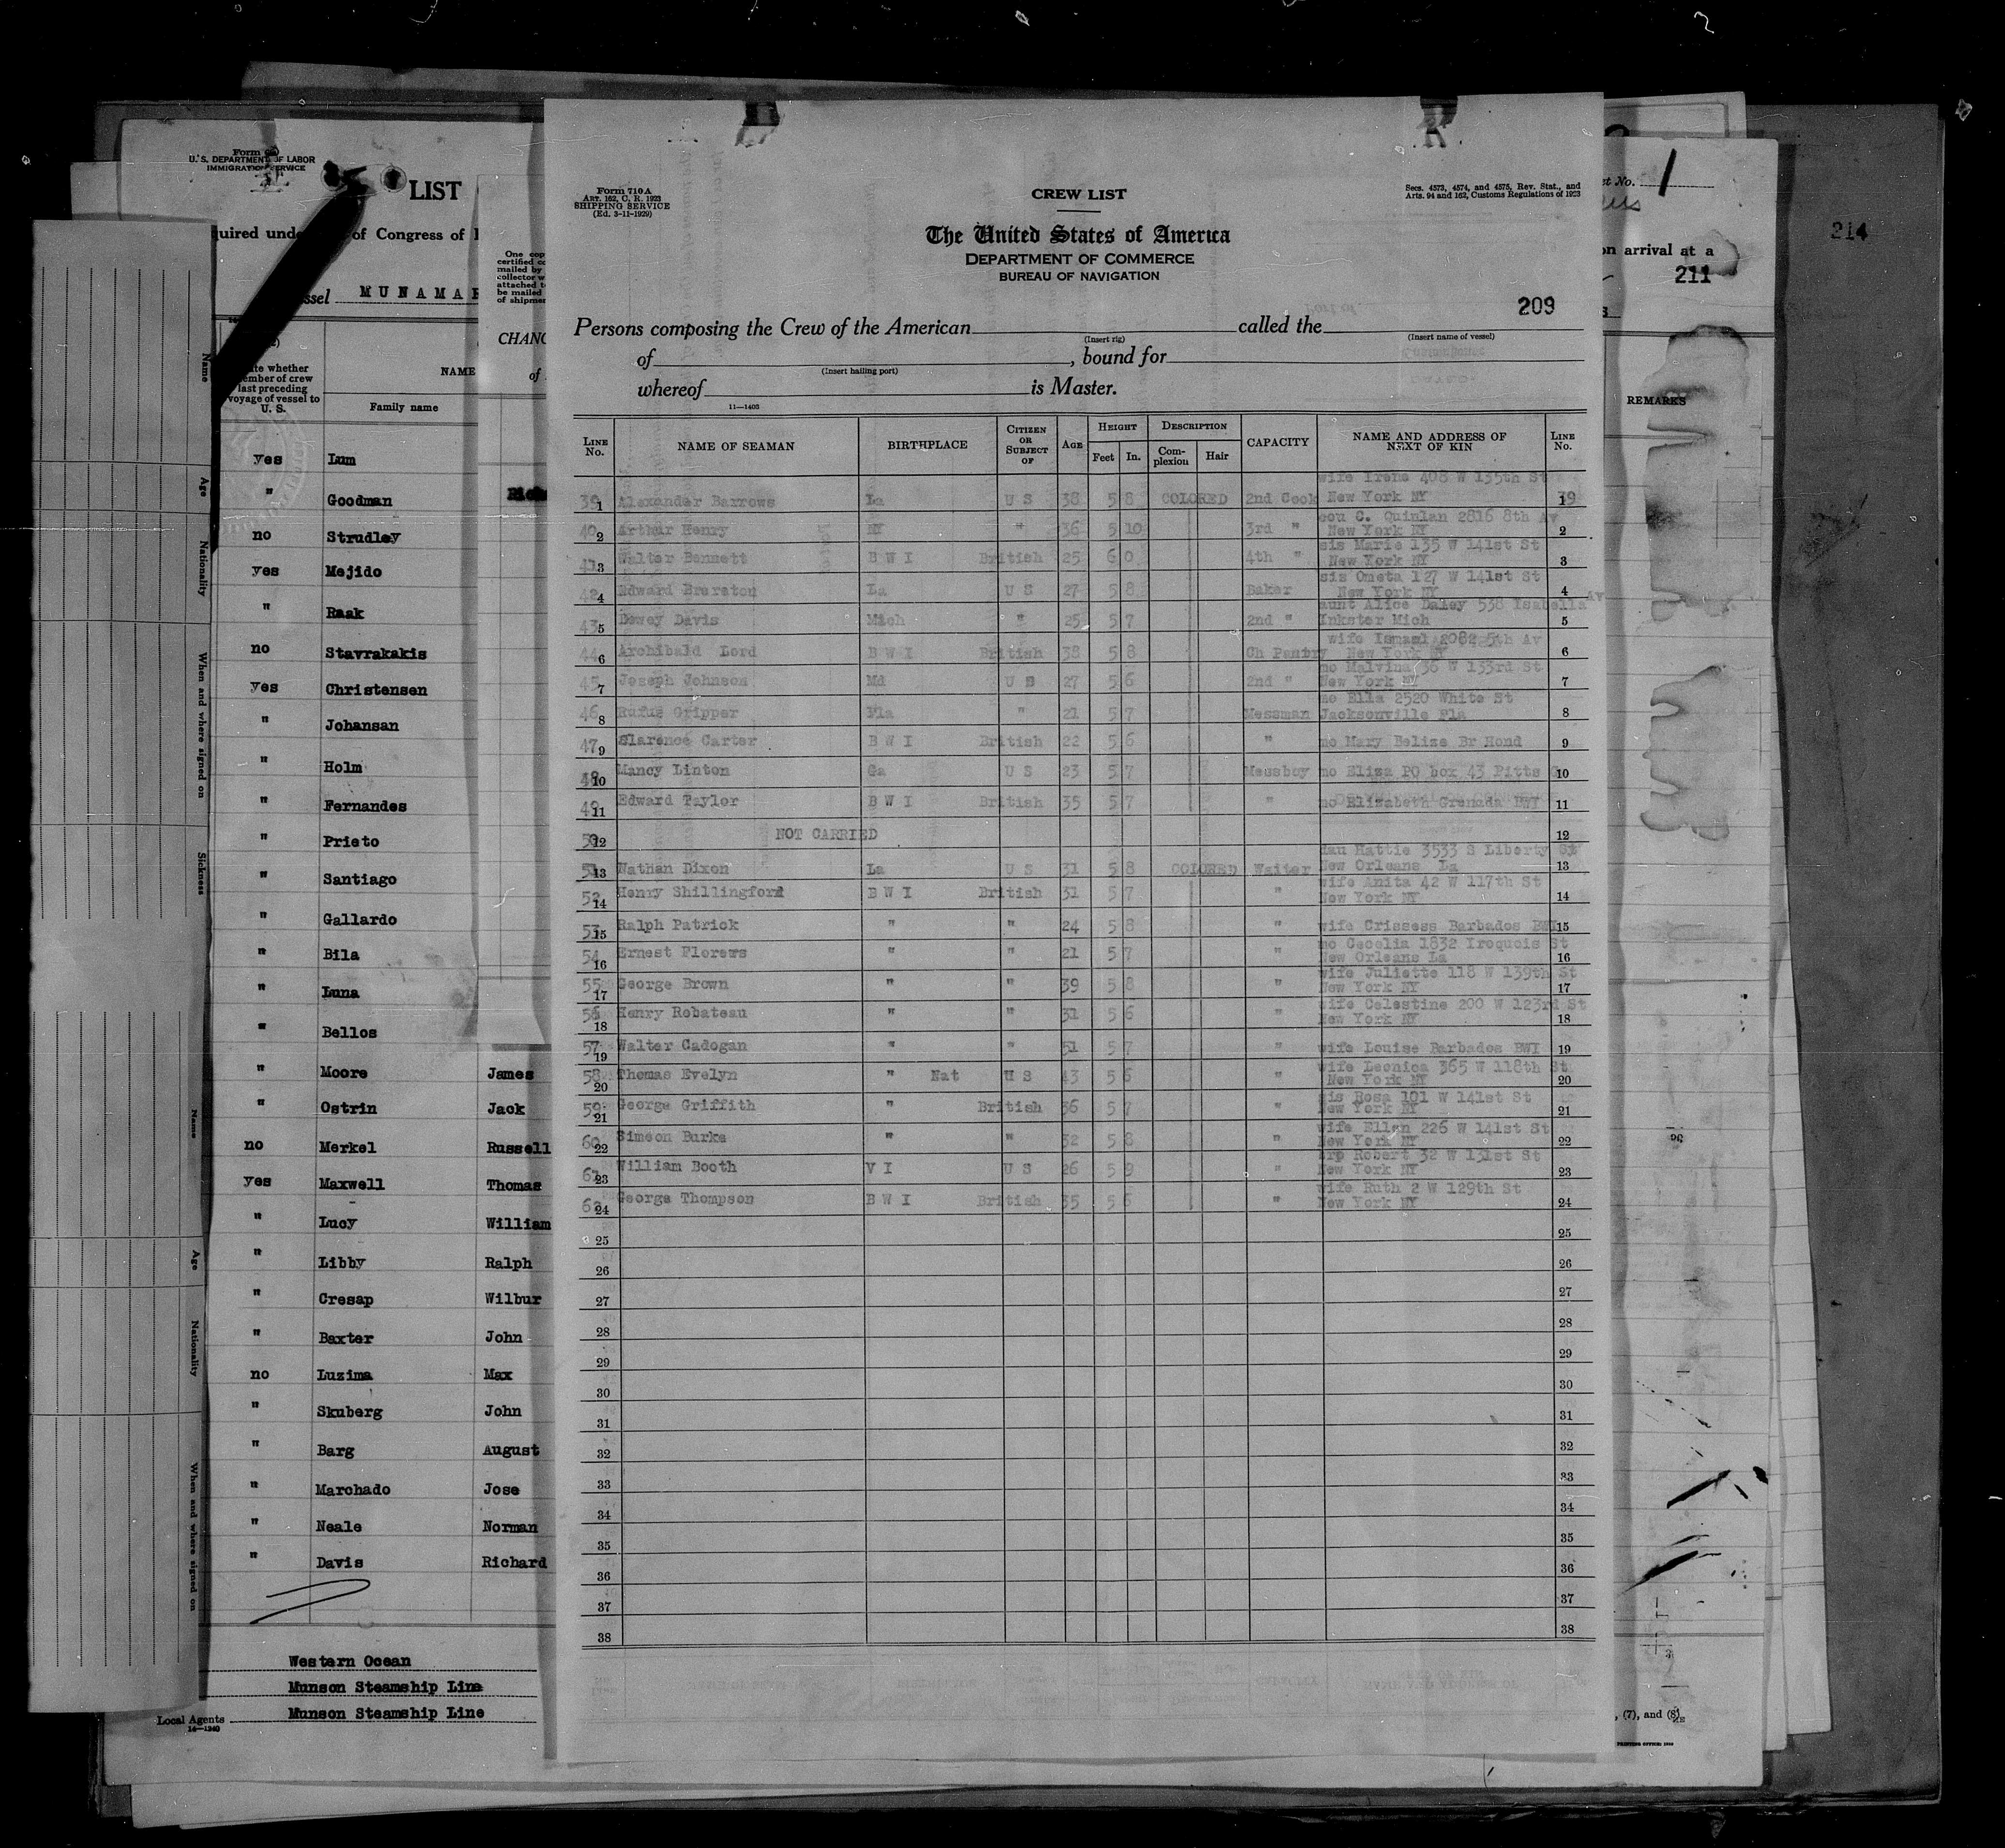 Form 710A
ART. 162, C. R. 1923
SHIPPING SERVICE
(Ed. 3-11-1929)
CREW LIST
Secs. 4573, 4574, and 4575, Rev. Stat., and
Arts. 94 and 162, Customs Regulations of 1923
The United States of America
DEPARTMENT OF COMMERCE
BUREAU OF NAVIGATION
209
Persons composing the Crew of the American called the
(Insert rig) (Insert name of vessel)
of , bound for
(Insert hailing port)
whereof is Master.
11—1403
LINE No. NAME OF SEAMAN BIRTHPLACE CITIZEN OR SUBJECT OF AGE HEIGHT Feet In. DESCRIPTION Complexion Hair CAPACITY NAME AND ADDRESS OF NEXT OF KIN LINE No.
wife Irene 408 W 135th St
39 1 Alexander Barrows La U S 38 5 8 COLORED 2nd Cook New York NY 1 39
cou C. Quinlan 2816 8th Av
40 2 Arthur Henry NY " 36 5 10 3rd " New York NY 2
sis Marie 135 W 141st St
41 3 Walter Bennett B W I British 25 6 0 4th " New York NY 3
sis Ometa 127 W 141st St
42 4 Edward Brereton La U S 27 5 8 Baker New York NY 4
aunt Alice Daley 538 Ysabella Av
43 5 Dewey Davis Mich " 25 5 7 2nd " Inkster Mich 5
wife Ismael 2082 5th Av
44 6 Archibald Lord B W I British 38 5 8 Ch Pantry New York NY 6
mo Malvina 36 W 133rd St
45 7 Joseph Johnson Md U S 27 5 6 2nd " New York NY 7
mo Ella 2520 White St
46 8 Rufus Gripper Fla " 21 5 7 Messman Jacksonville Fla 8
47 9 Clarence Carter B W I British 22 5 6 " mo Mary Belize Br Hond 9
48 10 Mancy Linton Ga U S 23 5 7 Messboy mo Eliza PO box 43 Pitts 10
49 11 Edward Taylor B W I British 35 5 7 " mo Elizabeth Grenada BWI 11
50 12 NOT CARRIED 12
dau Hattie 3533 S Liberty St
51 13 Nathan Dixon La U S 31 5 8 COLORED Waiter New Orleans La 13
wife Anita 42 W 117th St
52 14 Henry Shillingford B W I British 31 5 7 " New York NY 14
53 15 Ralph Patrick " " 24 5 8 " wife Crissess Barbados BWI 15
mo Cecelia 1832 Iroquois St
54 16 Ernest Florers " " 21 5 7 " New Orleans La 16
wife Juliette 118 W 139th St
55 17 George Brown " " 39 5 8 " New York NY 17
wife Celestine 200 W 123rd St
56 18 Henry Robateau " " 31 5 6 " New York NY 18
57 19 Walter Cadogan " " 51 5 7 " wife Louise Barbados BWI 19
wife Leonica 365 W 118th St
58 20 Thomas Evelyn " Nat U S 43 5 6 " New York NY 20
sis Rosa 101 W 141st St
59 21 George Griffith " British 36 5 7 " New York NY 21
wife Ellen 226 W 141st St
60 22 Simeon Burke " " 32 5 8 " New York NY 22
Robert 32 W 131st St
61 23 William Booth V I U S 26 5 9 " New York NY 23
wife Ruth 2 W 129th St
62 24 George Thompson B W I British 35 5 6 " New York NY 24
25 25
26 26
27 27
28 28
29 29
30 30
31 31
32 32
33 33
34 34
35 35
36 36
37 37
38 38
U. S. DEPARTMENT OF LABOR
IMMIGRATION SERVICE
LIST
of Congress of
MUNAMAR
CHANG
of
member of crew
last preceding
voyage of vessel to
U. S.
NAME
Family name
yes Lum
" Goodman
no Strudley
yes Mejido
" Raak
no Stavrakakis
yes Christensen
" Johansan
" Holm
" Fernandes
" Prieto
" Santiago
" Gallardo
" Bila
" Luna
" Bellos
" Moore James
" Ostrin Jack
no Merkel Russell
yes Maxwell Thomas
" Lucy William
" Libby Ralph
" Cresap Wilbur
" Baxter John
no Luzima Max
" Skuberg John
" Barg August
" Marchado Jose
" Neale Norman
" Davis Richard
Western Ocean
Munson Steamship Line
Local Agents Munson Steamship Line
14—1240
Name
Age
Nationality
When and where signed on
Sickness
Name
Age
Nationality
When and where signed on
No. 1
on arrival at a
211
214
REMARKS
, (7), and (8)